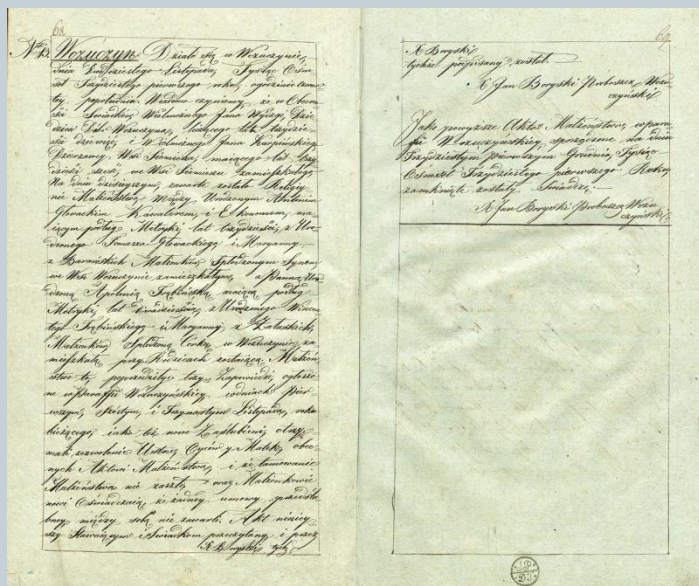 68.
Nro 13. Wożuczyn Działo się w Wożuczynie,
dnia Dwudziestego Listopada, Tysiąc Ośm
set Trzydziestego pierwszego roku, o godzinie czwar
tey popołudniu. Wiadomo czyniemy, że w Obecno
ści Świadków Wielmożnego Jana Wydżgi Dzie
dzica Dóbr Wożuczyna, liczącego lat trzydzie
ści dziewięć i W Jana
Dzierżawcy Wsi Siemierza, maiącego lat trzy
dzieści sześć, we Wsi Siemierzu zamieszkałego,
Na dniu dzisieyszym, zawarte zostało Religiy
nie Małżeństwo między Urodzonym Antonim
Głowackim Kawalerem, i Ekonomem, ma
iącym podług Metryki, lat trzydzieści, z Uro
dzonego Tomasza Głowackiego i Maryanny
z Małżonków, Spłodzonym Synem,
we Wsi Wożuczynie zamieszkałym, a Panną Uro
dzoną Apolonią maiącą podług
Metryki, lat dwadzieścia, z Urodzonego Wincen
tego i Maryanny z
Małżonków Spłodzoną Córką, w Wożuczynie za
mieszkałą przy Rodzicach zostaiącą. Małżeń
stwo to, poprzedziły trzy Zapowiedzi, ogłoszo
ne w Paraffii Wożuczyńskiey, w dniach Pier
wszym, Szóstym, i Trzynastym Listopada, roku
bieżącego, iako też nowo Zaślubieni, otrzy
mali zezwolenie Ustne, Oyców y Matek, obec
nych Aktowi Małżeństwa, i że tamowanie
Małżeństwa nie zaszło, oraz Małżonkowie
nowi Oświadczaią, że żadney umowy przedślu
bney, między sobą nie zawarli. Akt niniey
szy Stawaiącym i Świadkom przeczytany, i przez
X. Boryski
69.
X Boryski
tychże podpisany został.
X. Jan Boryski Proboszcz Wożu
czyński
Jako powyższe Akta Małżeństwa, w para
fii Wożuczyńskiey, sporządzone na dniu
Trzydziestym pierwszym Grudnia, Tysiąc
Ośmset Trzydziestego pierwszego Roku,
zamknięte zostały. Świadczę. —
X. Jan Boryski Proboszcz Wożu
czyński